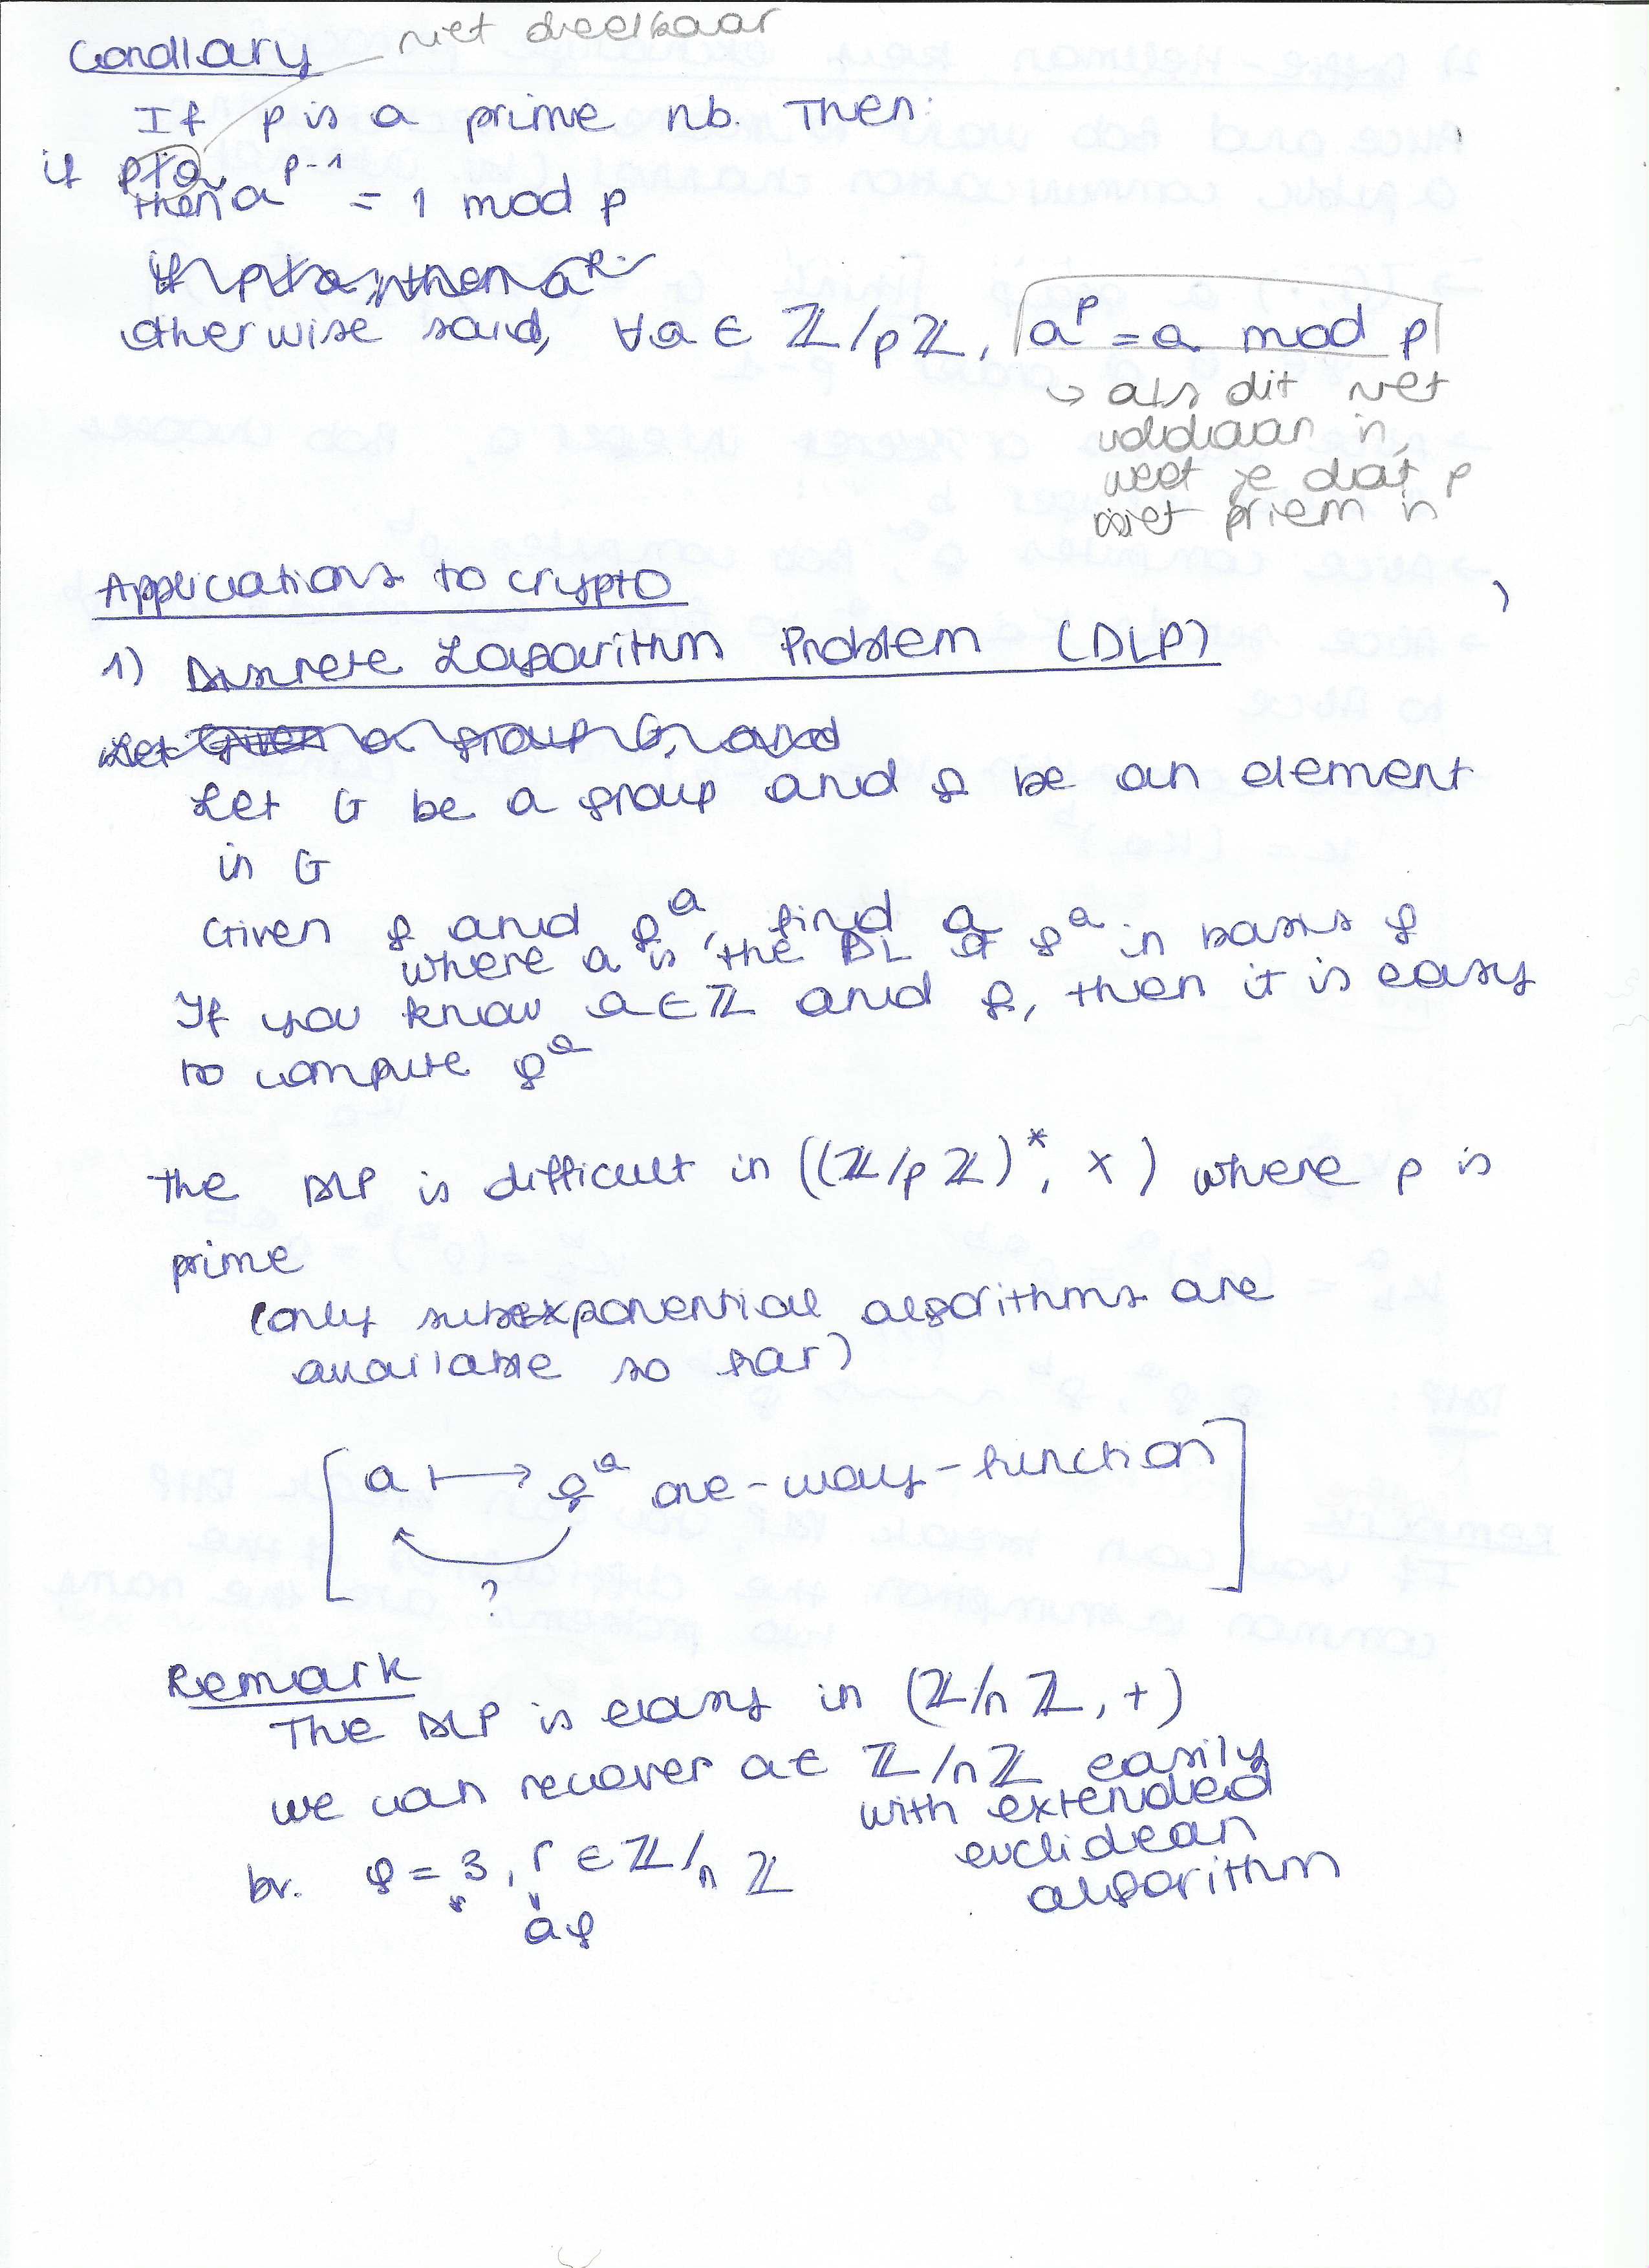 Corollary niet deelbaar
If p is a prime nb. Then:
if p∤a
then a^{p-1} = 1 mod p
if p∤a, then a^{p-
otherwise said, ∀a ∈ ℤ/pℤ, a^p = a mod p
↳ als dit niet
voldaan is,
weet je dat p
niet priem is
Applications to crypto
1) Discrete Logarithm Problem (DLP)
Let Given a group G, and
Let G be a group and g be an element
in G
Given g and g^a, find a
where a is the DL of g^a in basis g
If you know a ∈ ℤ and g, then it is easy
to compute g^a
The DLP is difficult in ((ℤ/pℤ)^*, ×) where p is
prime
(only subexponential algorithms are
available so far)
[a ↦ g^a one-way-function]
?
Remark
The DLP is easy in (ℤ/nℤ, +)
we can recover a ∈ ℤ/nℤ easily
with extended
euclidean
algorithm
bv. g = 3, r ∈ ℤ/nℤ
ag